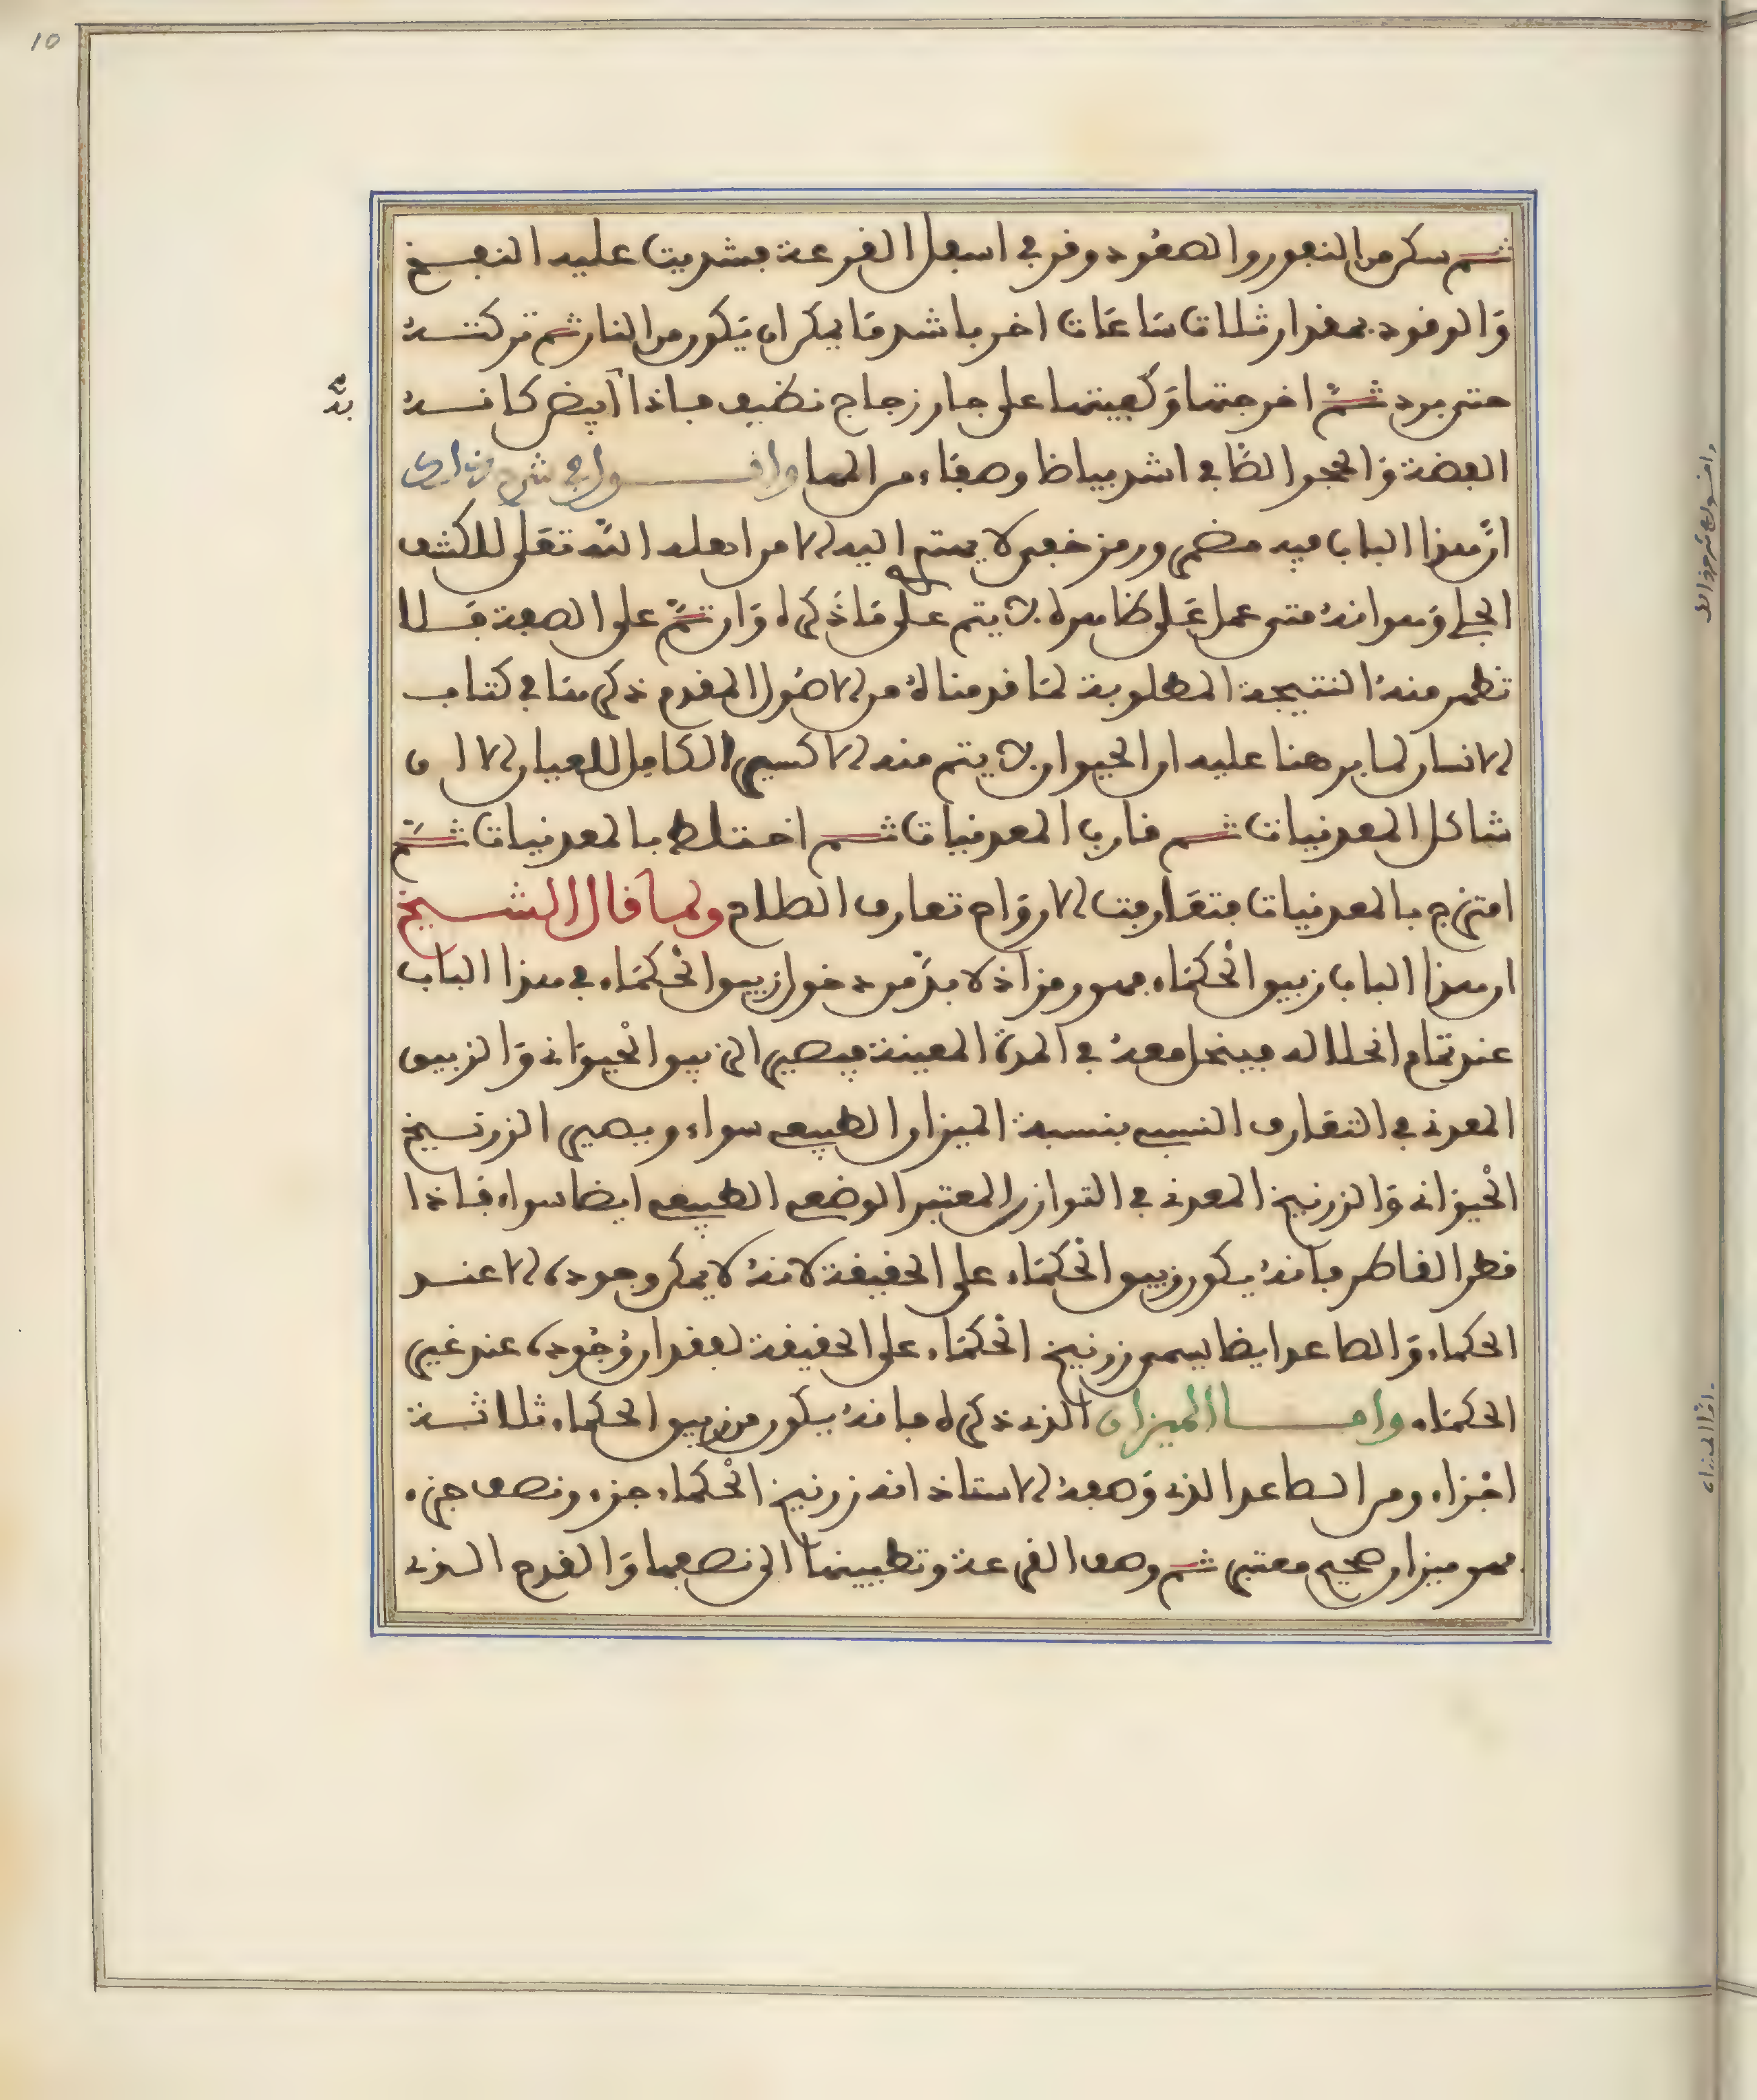 10
ثم سكن من النفور والصعود وقر في اسفل القرعة فشددت عليه النفخ
وَالوقود بمقدار ثلاث سَاعَات اخر باشد مَا يمكن ان يَكون من النار ثم تركتــه
حتى برد ثمّ اخرجتها وَكفيتها على جار زجاج نظيف فاذا ابيض كانــه
الفضة وَالحجر الصَّافي اشد بياضا وصفاء من المها واقــــول في شرح هذا
ان هذا الباب فيه مضمر ورمز خفي لا يهتدي اليه الا من اهله الله تعَلى للكشف
الجلي وَهو انه متى عمل عَلى ظاهره لا يتم على مَا ذكره وَان تمّ على الصفة فــلا
تظهر منه النتيجة المطلوبة لمَا قدمناه من الاصُول المقدم ذكرهَا في كتاب
الانسان لما برهنا عليه ان الحيوان لا يتم منه الاكسير الكامل للعيار الا ان
شاكل المعدنيات ثــم قارب المعدنيات ثــم اختلط بالمعدنيات ثــمّ
امتزج بالمعدنيات فتقَاربت الاروَاح تعارف الطلاح ولما قال الشــيخ
ان هذا الباب زيبق الحُكمَاء فهو رمز اذ لا بدّ من دخول زيبق الحُكمَاء في هذا الباب
عند تمَام انحلاله فينحل معهُ في المدة المعينة فيصير الزيبق الحيوَاني وَالزيبق
المعدني في التقارب النسبي بنسبة الميزان الطبيعي سواء ويصير الزرنــيخ
الحيوَاني وَالزرنيخ المعدني في التوازن المعتبر الوضعي الطبيعي ايضا سواء فاذا
قطر القاطر فانهُ يكون زيبق الحُكمَاء على الحقيقة لانهُ لا يمكن وجوده الا عنــد
الحكماء وَالصاعد ايضا يسمى زرنيخ الحُكمَاء على الحقيقة لفقدان وُجُوده عند غير
الحكمَاء وامــــا الميزان الذي ذكره فانهُ يكون من زيبق الحكماء ثلاثــة
اجْزاء ومن الصاعد الذي وَصفهُ الاستاذ انه زرنيخ الحُكماء جزء ونصف جزء
فهو ميزان صحيح معتبر ثــم وصف القرعة وتطيينها الى نصفها وَالقدح الــذي